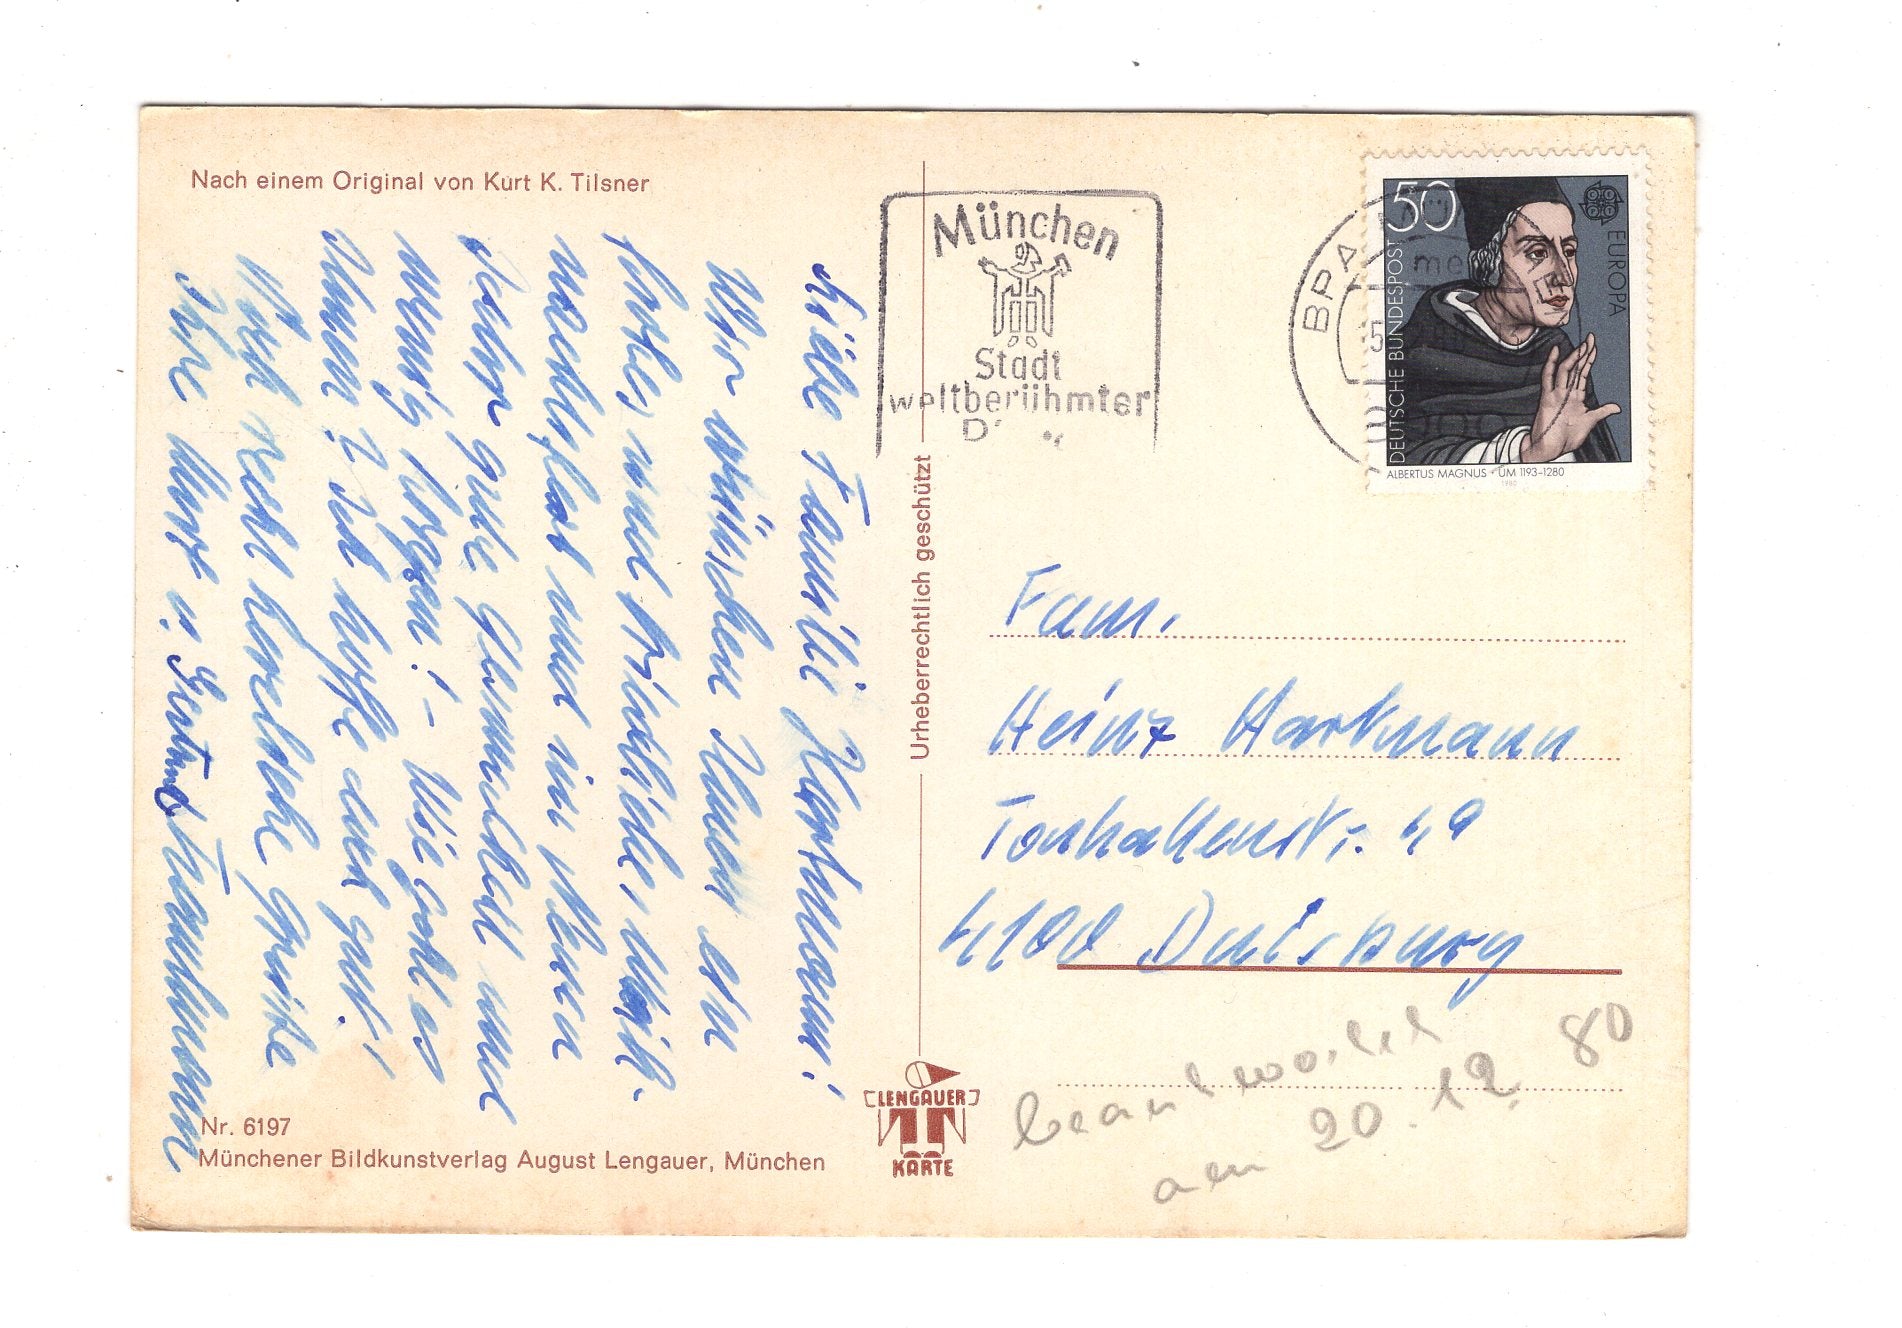 Nach einem Original von Kurt K. Tilsner
Liebe Familie Hartmann!
Wir wünschen Ihnen ein
frohes und friedliches Weih-
nachtsfest und im Neuen
Jahr gute Gesundheit und
wenig Sorgen! - Wie geht es
Ihnen? Ich hoffe doch gut!
Noch recht herzliche Grüße
Ihre Kurt u. Gertrud Trautmann
Nr. 6197
Münchener Bildkunstverlag August Lengauer, München
Urheberrechtlich geschützt
LENGAUER
KARTE
München
Stadt
weltberühmter
BPA
50
EUROPA
DEUTSCHE BUNDESPOST
ALBERTUS MAGNUS · UM 1193-1280
1980
Fam.
Heinz Hartmann
Tonhallenstr. 49
4100 Duisburg
beantwortet
am 20.12.80